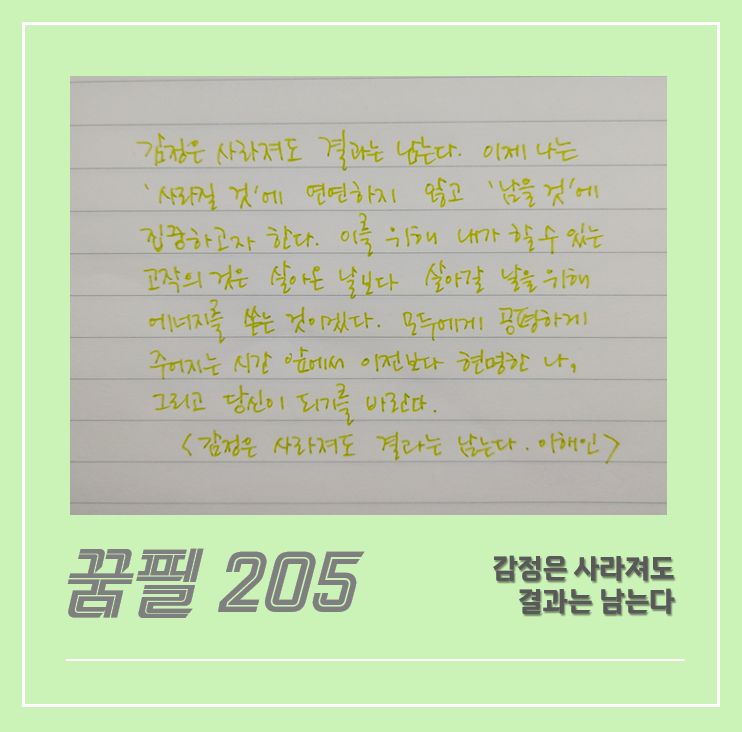 감정은 사라져도 결과는 남는다. 이제 나는
'사라질 것'에 연연하지 않고 '남을 것'에
집중하고자 한다. 이를 위해 내가 할 수 있는
고작의 것은 살아온 날보다 살아갈 날을 위해
에너지를 쏟는 것이겠다. 모두에게 공평하게
주어지는 시간 앞에서 이전보다 현명한 나,
그리고 당신이 되기를 바란다.
<감정은 사라져도 결과는 남는다. 이해인>
꿈필 205
감정은 사라져도
결과는 남는다